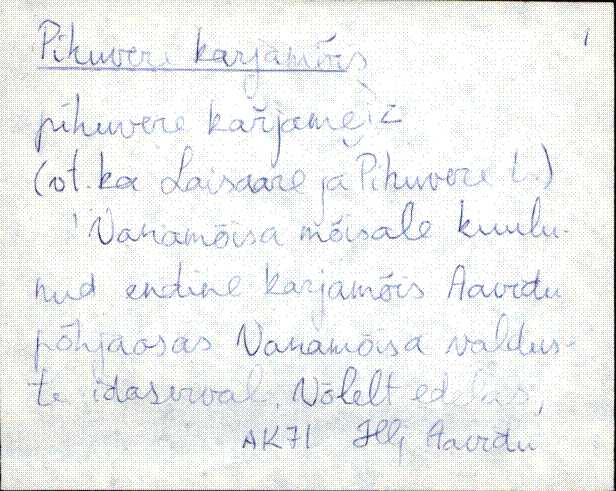 1
Pikuvere karjamõis
pikuvere kařjamɐiz
(vt. ka Laisaare ja Pikuvere t.)
' Vanamõisa mõisale kuulu-
nud endine karjamõis Aavrdu
põhjaosas Vanamõisa valdus-
te idaserval. Võlelt edelas,
AK71 Jlj Aavrdu